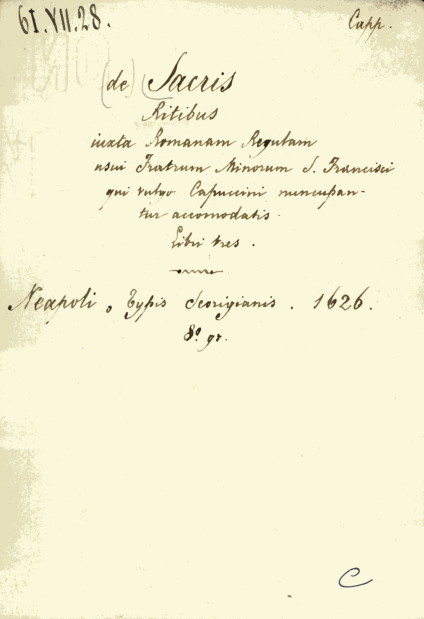 61.VII.28.
Capp.
(de) Sacris
Ritibus
iuxta Romanam Regulam
usui Fratrum Minorum S. Francisci
qui vulgo Capuccini nuncupan-
tur accomodatis.
Libri tres.
Neapoli, Typis Scorigianis. 1626.
8.° gr.
C